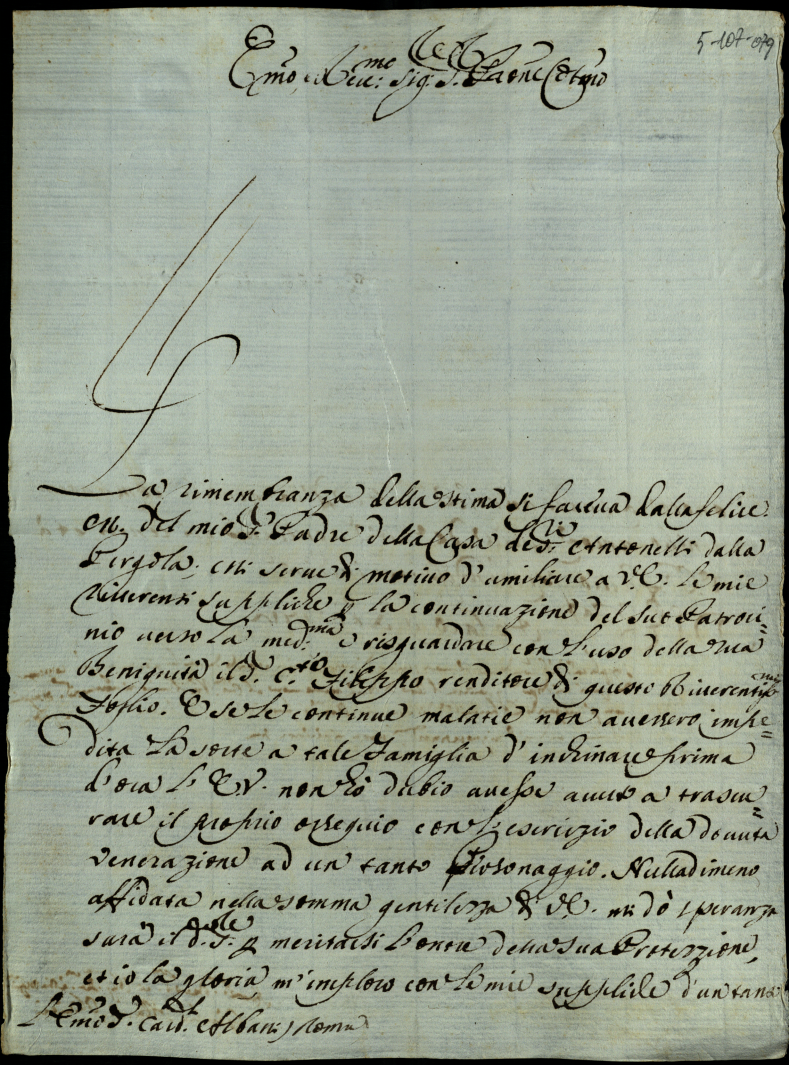 5-107-079
Emo, e Rmo Sig.r Sig.r Prone Colmo
La rimembranza della stima si faceua dalla felice
m. del mio Sr Padre della Casa de Sri Antonelli dalla
Pergola, mi serue di motiuo d'umiliare a V.E. le mie
riuerenti suppliche p la continuazione del suo Patroci=
nio uerso la medma e risguardare con l'uso della sua
Benignità il Sr Filippo renditore di questo riuerentismo
Foglio. E se le continue malatie non auessero impe=
dita la sorte a tale Famiglia d'inchinare prima
d'ora l'E.V. non hò dubio auesse auuto a trascu=
rare il proprio ossequio con l'esercizio della douuta
venerazione ad un tanto Personaggio. Nulladimeno
affidata nella somma gentilezza di V.E. mi dò speranza
sarà il d. Sr p meritarsi l'onore della sua Protezzione,
et io la gloria m'imploro con le mie suppliche d'un tanto
Emo Sr Card. Albani, Roma